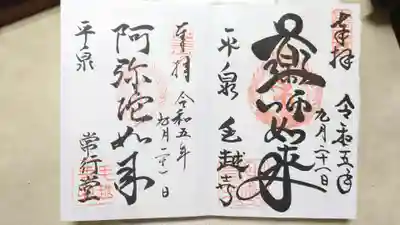 奉拝
令和五年
九月二十一日
薬師如来
平泉
毛越寺
奉拝
令和五年
九月二十一日
阿弥陀如来
平泉
常行堂